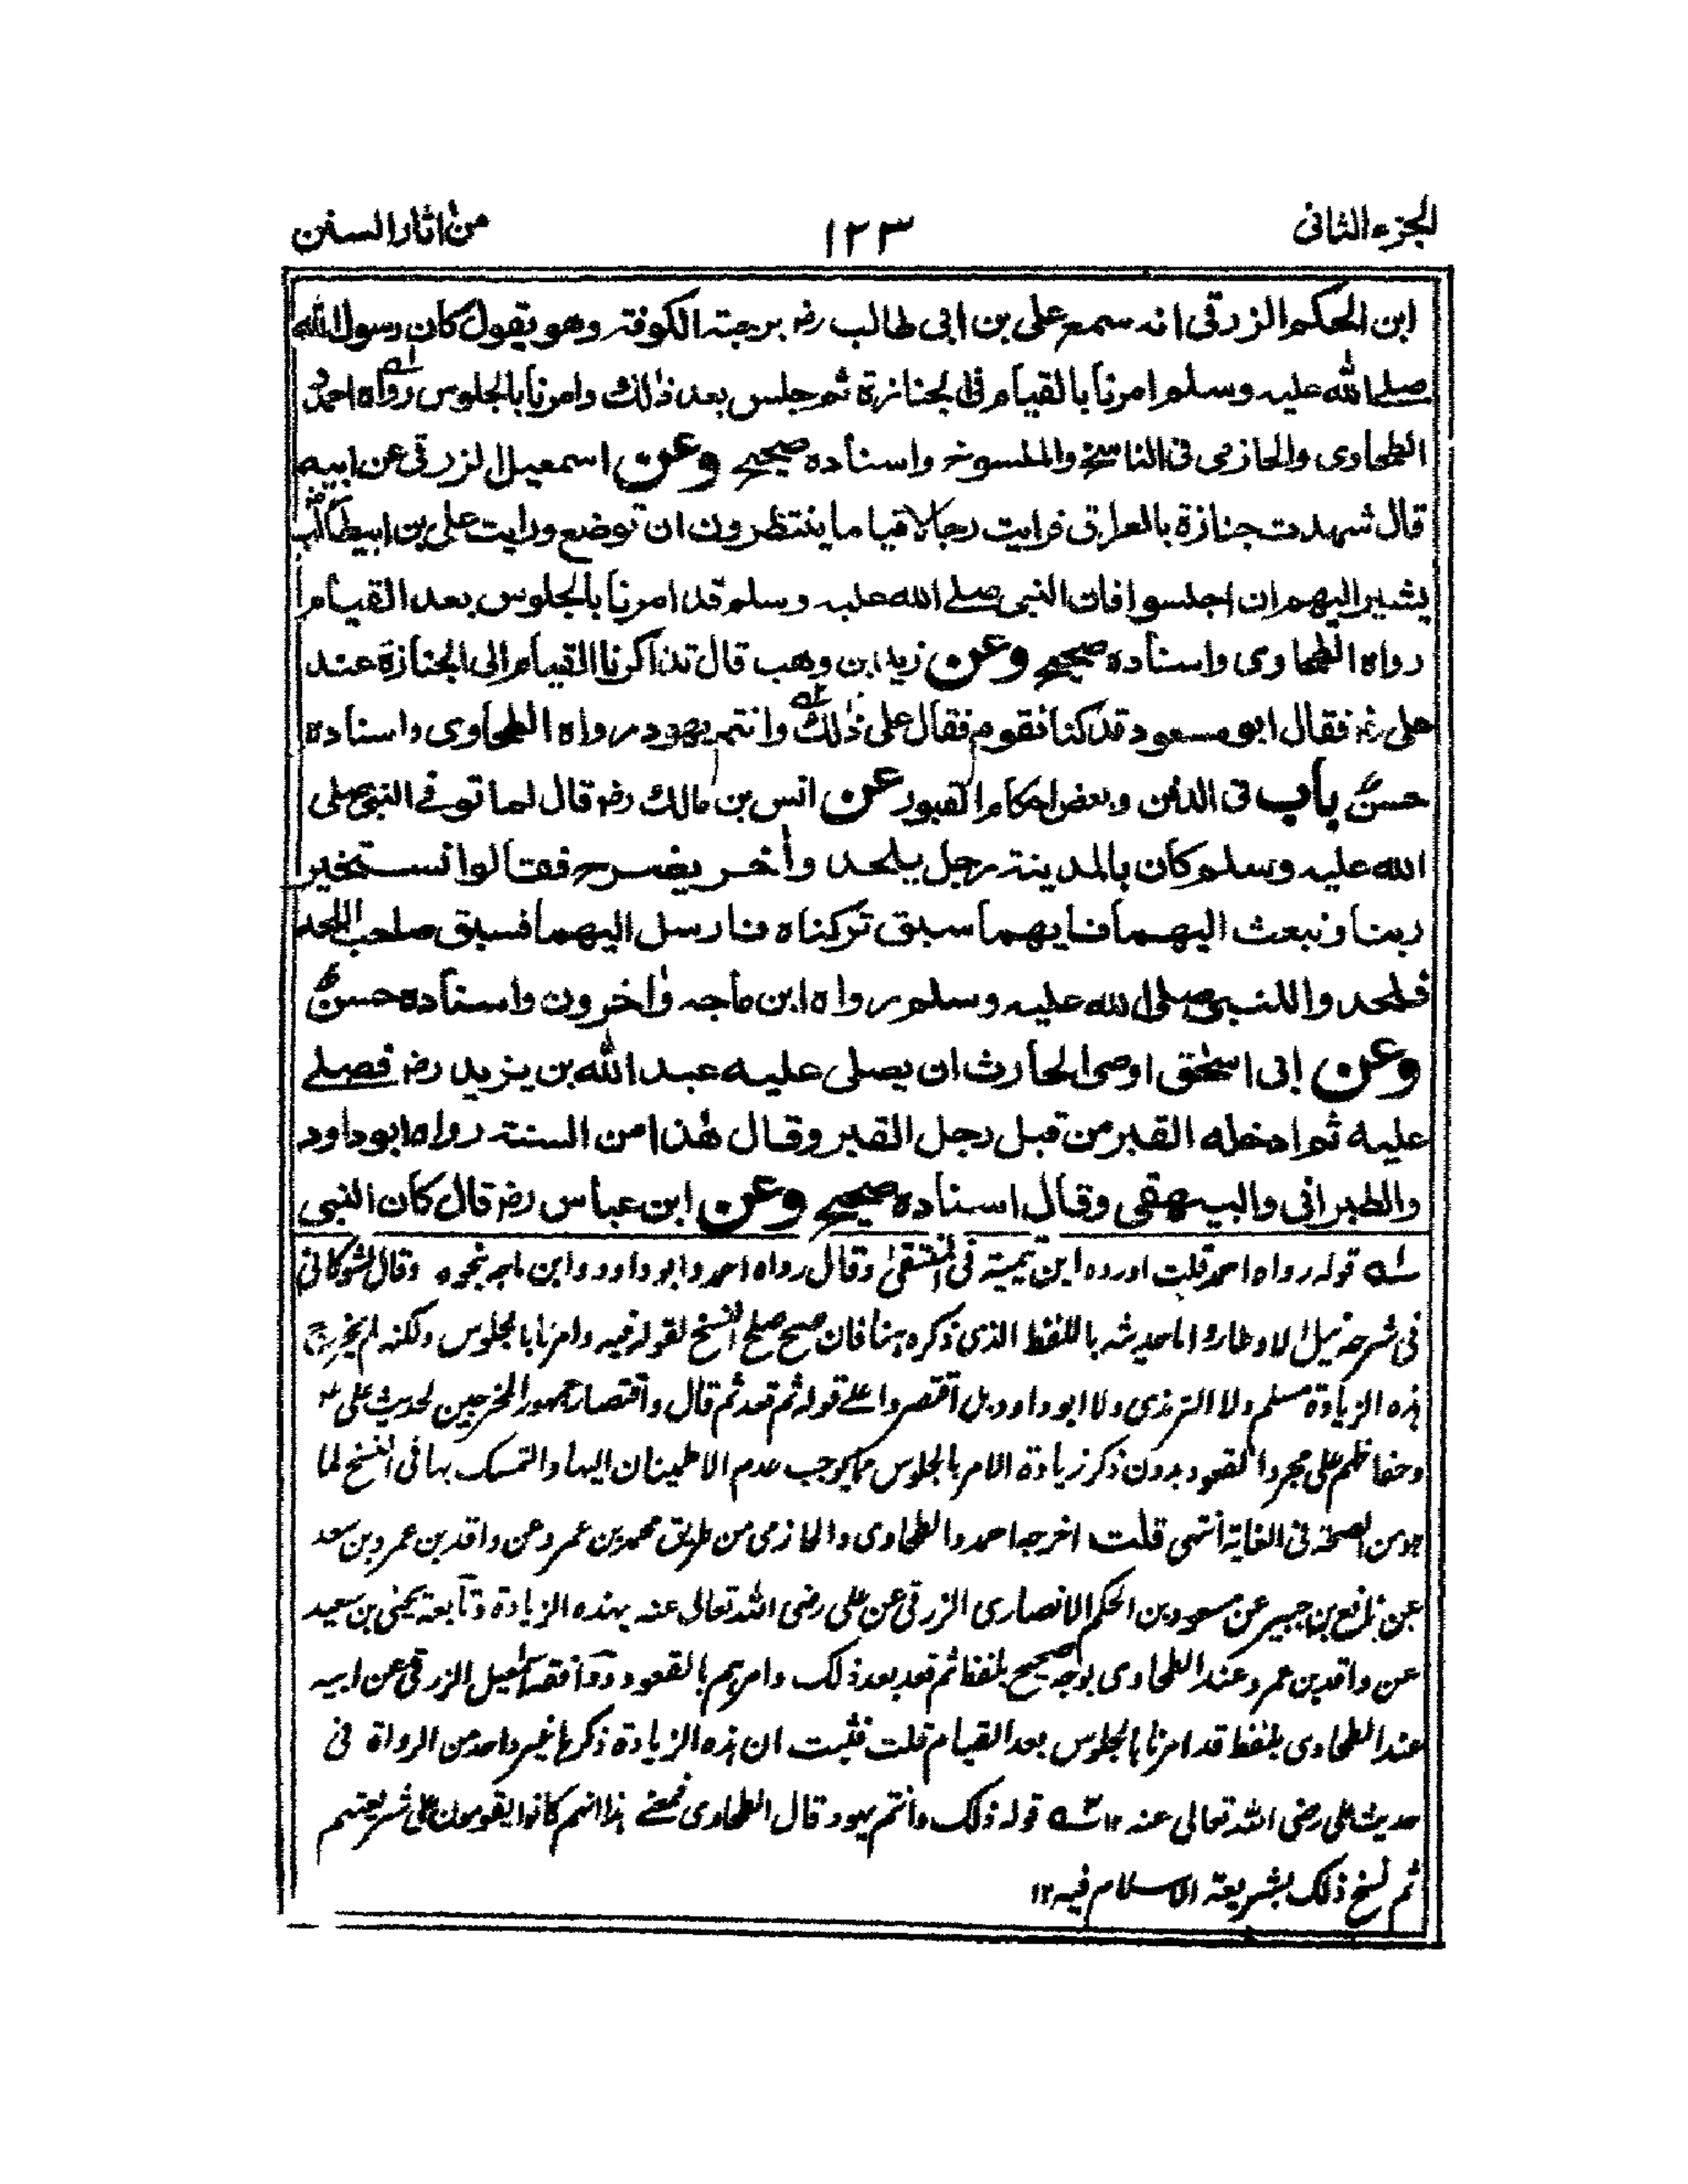 الجزء الثانى
١٢٣
من اثار السنن
ابن الحكم الزرقى انه سمع على بن ابى طالب رض برحبة الكوفة وهو يقول كان رسول الله
صلے الله عليه وسلم امرنا بالقيام فى الجنازة ثم جلس بعد ذٰلك وامرنا بالجلوس رواه احمد و
الطحاوى والحازمى فى الناسخ والمنسوخ واسناده صحيح وعن اسمعيل الزرقى عن ابيه
قال شهدت جنازة بالعراق فرايت رجالا قياما ينتظرون ان توضع ورايت على بن ابيطالب رض
يشير اليهم ان اجلسوا فان النبى صلے الله عليه وسلم قد امرنا بالجلوس بعد القيام
رواه الطحاوى واسناده صحيح وعن زيد بن وهب قال تذاكرنا القيام الى الجنازة عند
على رض فقال ابو مسعود قد كنا نقوم فقال على ذٰلك وانتم يهود رواه الطحاوى واسناده
حسن باب فى الدفن وبعض احكام القبور عن انس بن مالك رض قال لما توفى النبى صلى
الله عليه وسلم كان بالمدينة رجل يلحد وأخر يضرح فقالوا نستخير
ربنا ونبعث اليهما فايهما سبق تركناه فارسل اليهما فسبق صاحب اللحد
فلحدوا للنبى صلى الله عليه وسلم رواه ابن ماجه وٰاخرون واسناده حسن
وعن ابى اسحٰق اوصى الحارث ان يصلى عليه عبد الله بن يزيد رض فصلے
عليه ثم ادخله القبر من قبل رجل القبر وقال هٰذا من السنة رواه ابو داود
والطبرانى والبيهقى وقال اسناده صحيح وعن ابن عباس رض قال كان النبى
له قوله رواه احمد قلت اورده ابن تيمية فى المنتقىٰ وقال رواه احمد وابو داود وابن ماجه نحوه وقال الشوكانى
فى شرحه نيل الاوطار واما حديثه باللفظ الذى ذكره ہنا فان صح صلح النسخ لقوله فيه وامرنا بالجلوس ولكنه لم يخرج
ہذه الزيادة مسلم ولا الترمذى ولا ابو داود بل اقتصروا علے قوله ثم قعد ثم قال واقتصار جمهور المخرجين لحديث على رض
وحفاظهم على مجرد القعود بدون ذكر زيادة الامر بالجلوس مما يوجب عدم الاطمينان اليها والتمسك بها فى النسخ لما
ہو من الصحة فى الغاية انتهى قلت اخرجه احمد والطحاوى والحازمى من طريق محمد بن عمرو عن واقد بن عمرو بن سعد
عن نافع بن جبير عن مسعود بن الحكم الانصارى الزرقى عن على رضى الله تعالى عنه بهذه الزيادة وتابعه يحيى بن سعيد
عن واقد بن عمرو عند الطحاوى بوجه صحيح بلفظ ثم قعد بعد ذلك وامرہم بالقعود ووافقه اسمٰعيل الزرقى عن ابيه
عند الطحاوى بلفظ قد امرنا بالجلوس بعد القيام قلت فثبت ان ہذه الزيادة ذكرها غير واحد من الرواة فى
حديث على رضى الله تعالى عنه ١٢ ٢ه قوله ذلك وانتم يهود قال الطحاوى فمعنے ہذا انهم كانوا يقومون على شريعتهم
ثم نسخ ذلك بشريعة الاسلام فيه ١٢